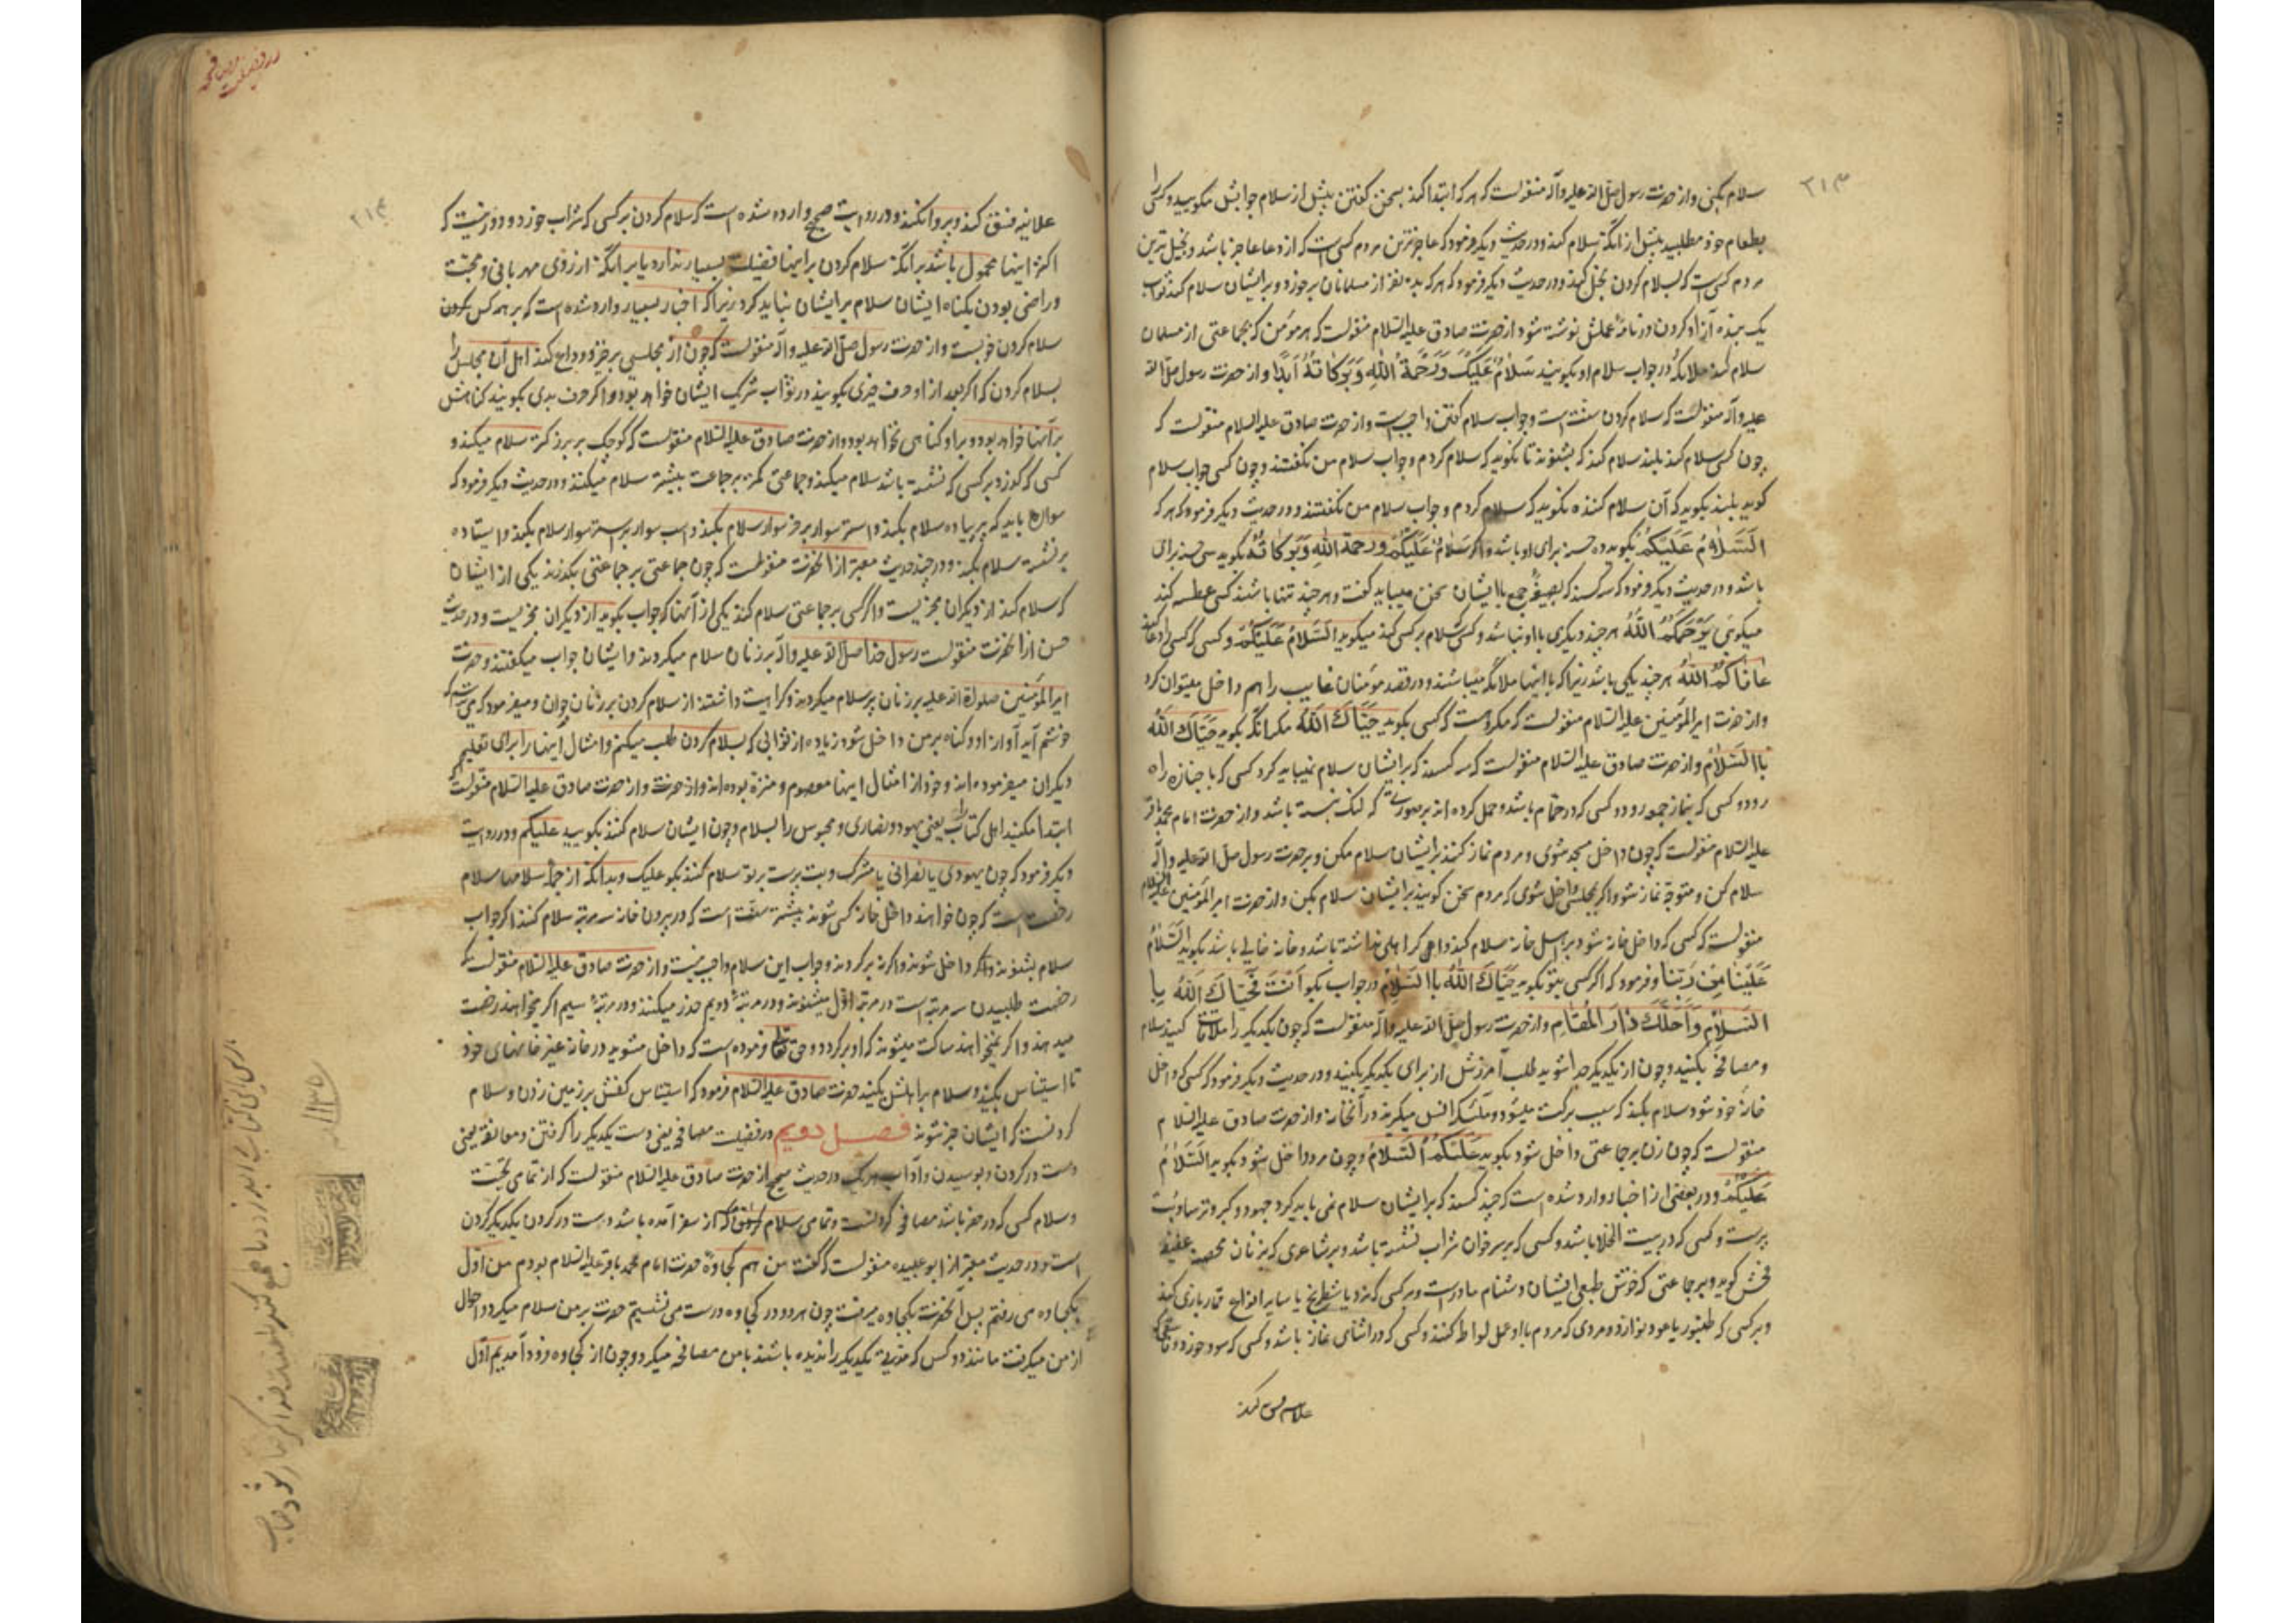 سلام بکنی و از حضرت رسول صلی الله علیه وآله منقولست که هر که ابتدا کند بسخن کفتن پیش از سلام جوابش مکویید و کسی را
بطعام خود مطلبید پیش از آنکه سلام کند و در حدیث دیکر فرمود که عاجزترین مردم کسی است که از دعا عاجز باشد و بخیل ترین
مردم کسی است که بسلام کردن بخل کند و در حدیث دیکر فرمود که هر که بده نفر از مسلمانان برخورد و بر ایشان سلام کند ثواب
یک بنده آزاد کردن در نامه عملش نوشته شود از حضرت صادق علیه السلام منقولست که هر مؤمن که بجماعتی از مسلمان
سلام کند ملائکه در جواب سلام او بکویند سَلامٌ عَلَیْکَ وَرَحْمَةُ اللهِ وَبَرَکاتُهُ اَبَدًا و از حضرت رسول صلی الله
علیه وآله منقولست که سلام کردن سنت است و جواب سلام کفتن واجب است و از حضرت صادق علیه السلام منقولست که
چون کسی سلام کند بلند سلام کند که بشنوند تا نکوید که سلام کردم و جواب سلام من نکفتند و چون کسی جواب سلام
کوید بلند بکوید که آن سلام کننده نکوید که سلام کردم و جواب سلام من نکفتند و در حدیث دیکر فرمود که هر که
اَلسَّلامُ عَلَیْکُمْ بکوید ده حسنه برای او باشد و اکر سَلامٌ عَلَیْکُمْ وَرَحْمَةُ اللهِ وَبَرَکاتُهُ بکوید سی حسنه برای
باشد و در حدیث دیکر فرمود که سه کسند که بصیغه جمع با ایشان سخن میباید کفت و هر چند تنها باشند کسی عطسه کند
میکویی یَرْحَمُکُمُ اللهُ هر چند دیکری با او نباشد و کسی سلام بر کسی کند میکوید اَلسَّلامُ عَلَیْکُمْ و کسی که کسی را دعا کند
عافاکُمُ اللهُ هر چند یکی باشد زیرا که با اینها ملائکه میباشند و در قصد مؤمنان غایب را هم داخل میتوان کرد
و از حضرت امیرالمؤمنین علیه السلام منقولست که مکروهست که کسی بکوید حَیّاکَ اللهُ مکر آنکه بکوید حَیّاکَ اللهُ
بِاالسَّلامِ و از حضرت صادق علیه السلام منقولست که سه کسند که بر ایشان سلام نمیباید کرد کسی که با جنازه راه
رود و کسی که بنماز جمعه رود و کسی که در حمام باشد و حمل کرده اند بر صورتی که لنک نبسته باشد و از حضرت امام محمد باقر
علیه السلام منقولست که چون داخل مسجد شوی و مردم نماز کنند بر ایشان سلام مکن و بر حضرت رسول صلی الله علیه وآله
سلام کن و متوجه نماز شو و اکر بمجلسی داخل شوی که مردم سخن کویند بر ایشان سلام بکن و از حضرت امیرالمؤمنین علیه السلام
منقولست که کسی که داخل خانه شود بر اهل خانه سلام کند و اکر اهلی نداشته باشد و خانه خالی باشد بکوید اَلسَّلامُ
عَلَیْنا مِنْ رَبِّنا و فرمود که اکر کسی بتو بکوید حَیّاکَ اللهُ بِاالسَّلامِ در جواب بکو اَنْتَ فَحَیّاکَ اللهُ بِا
السَّلامِ وَاَحَلَّکَ دارَ المُقامِ و از حضرت رسول صلی الله علیه وآله منقولست که چون یکدیکر را ملاقات کنید سلام
و مصافحه بکنید و چون از یکدیکر جدا شوید طلب آمرزش از برای یکدیکر بکنید و در حدیث دیکر فرمود که کسی که داخل
خانه خود شود سلام بکند که سبب برکت میشود و ملائکه انس میکیرند در آنخانه و از حضرت صادق علیه السلام
منقولست که چون زن بر جماعتی داخل شود بکوید عَلَیْکُمُ السَّلامُ و چون مرد داخل شود بکوید اَلسَّلامُ
عَلَیْکُمْ و در بعضی از اخبار وارد شده است که چند کسند که بر ایشان سلام نمی باید کرد جهود و کبر و ترسا و بت
پرست و کسی که در بیت الخلا باشد و کسی که بر سر خوان شراب نشسته باشد و بر شاعری که بزنان محصنه عفیفه
فحش کوید و بر جماعتی که خوش طبعی ایشان دشنام مادر است و بر کسی که نرد یا شطرنج یا سایر انواع قمار بازی کند
و بر کسی که طنبور یا عود نوازد و مردی که مردم با او عمل لواط کنند و کسی که در اثنای نماز باشد و کسی که سود خورد و
علانیه فسق کند
٢١٣
علانیه فسق کند و پروا نکند و در روایت صحیح وارد شده است که سلام کردن بر کسی که شراب خورد و دور نیست که
اکثر اینها محمول باشد بر آنکه سلام کردن بر اینها فضیلت بسیار ندارد یا بر آنکه از روی مهربانی و محبت
و راضی بودن بکناه ایشان سلام بر ایشان نباید کرد زیرا که اخبار بسیار وارد شده است که بر همه کس
سلام کردن خوبست و از حضرت رسول صلی الله علیه وآله منقولست که چون از مجلسی برخیزد وداع کند اهل آن مجلس را
بسلام کردن که اکر بعد از او حرف خیری بکویند در ثواب شریک ایشان خواهد بود و اکر حرف بدی بکویند کناهش
بر آنها خواهد بود و بر او کناهی نخواهد بود و از حضرت صادق علیه السلام منقولست که کوچک بر بزرک سلام میکند و
کسی که کذرد بر کسی که نشسته باشد سلام میکند و جماعتی کمتر بر جماعت بیشتر سلام میکنند و در حدیث دیکر فرمود که
سواره باید که بر پیاده سلام بکند و استر سوار بر خر سوار سلام بکند و اسب سوار بر استر سوار سلام بکند و ایستاده
بر نشسته سلام بکند و در چند حدیث معتبر از آنحضرت منقولست که چون جماعتی بر جماعتی بکذرند یکی از ایشان
که سلام کند از دیکران مجزیست و اکر کسی بر جماعتی سلام کند یکی از آنها که جواب بکوید از دیکران مجزیست و در حدیث
حسن از آنحضرت منقولست رسول خدا صلی الله علیه وآله بر زنان سلام میکردند و ایشان جواب میکفتند و حضرت
امیرالمؤمنین صلوات الله علیه بر زنان پیر سلام میکردند و کراهیت داشتند از سلام کردن بر زنان جوان و میفرمود که می ترسم که
خوشم آید آواز او و کناه بر من داخل شود زیاده از ثوابی که بسلام کردن طلب میکنم و امثال اینها را برای تعلیم
دیکران میفرموده اند و خود از امثال اینها معصوم و منزه بوده اند و از حضرت صادق علیه السلام منقولست
ابتدا مکنید اهل کتاب یعنی یهود و نصاری و مجوس را بسلام و چون ایشان سلام کنند بکویید علیکم و در روایت
دیکر فرمود که چون یهودی یا نصرانی یا مشرک و بت پرست بر تو سلام کنند بکو علیک و بدانکه از جمله سلامها سلام
رخصت است که چون خواهند داخل خانه کسی شوند پیشتر سنت است که در بیرون خانه سه مرتبه سلام کنند اکر جواب
سلام بشنوند داخل شوند و اکر نه برکردند و جواب این سلام واجب نیست و از حضرت صادق علیه السلام منقولست که
رخصت طلبیدن سه مرتبه است در مرتبه اول میشنوند و در مرتبهٔ دویم حذر میکنند و در مرتبهٔ سیم اکر میخواهند رخصت
میدهند و اکر نمیخواهند ساکت میشوند که او برکردد و حق تعالی فرموده است که داخل مشوید در خانه غیر خانهای خود
تا استیناس بکنید و سلام بر اهلش بکنید حضرت صادق علیه السلام فرمود که استیناس کفش بر زمین زدن و سلام
کردنست که ایشان خبر شوند فصل دویم در فضیلت مصافحه یعنی دست یکدیکر را کرفتن و معانقه یعنی
دست در کردن و بوسیدن و آداب هر یک در حدیث صحیح از حضرت صادق علیه السلام منقولست که از تمامی تحیت
و سلام کسی که در حضر باشد مصافحه کردنست و تمامی سلام کردن که از سفر آمده باشد دست در کردن یکدیکر کردن
است و در حدیث معتبر از ابو عبیده منقولست که کفت من هم کجاوهٔ حضرت امام محمد باقر علیه السلام بودم من اول
بکجاوه می رفتم پس آنحضرت بکجاوه میرفت چون هر دو در کجاوه درست می نشستیم حضرت بر من سلام میکرد و احوال
از من میکرفت مانند دو کس که مدتی یکدیکر را ندیده باشند با من مصافحه میکرد و چون از کجاوه فرود آمدیم اول